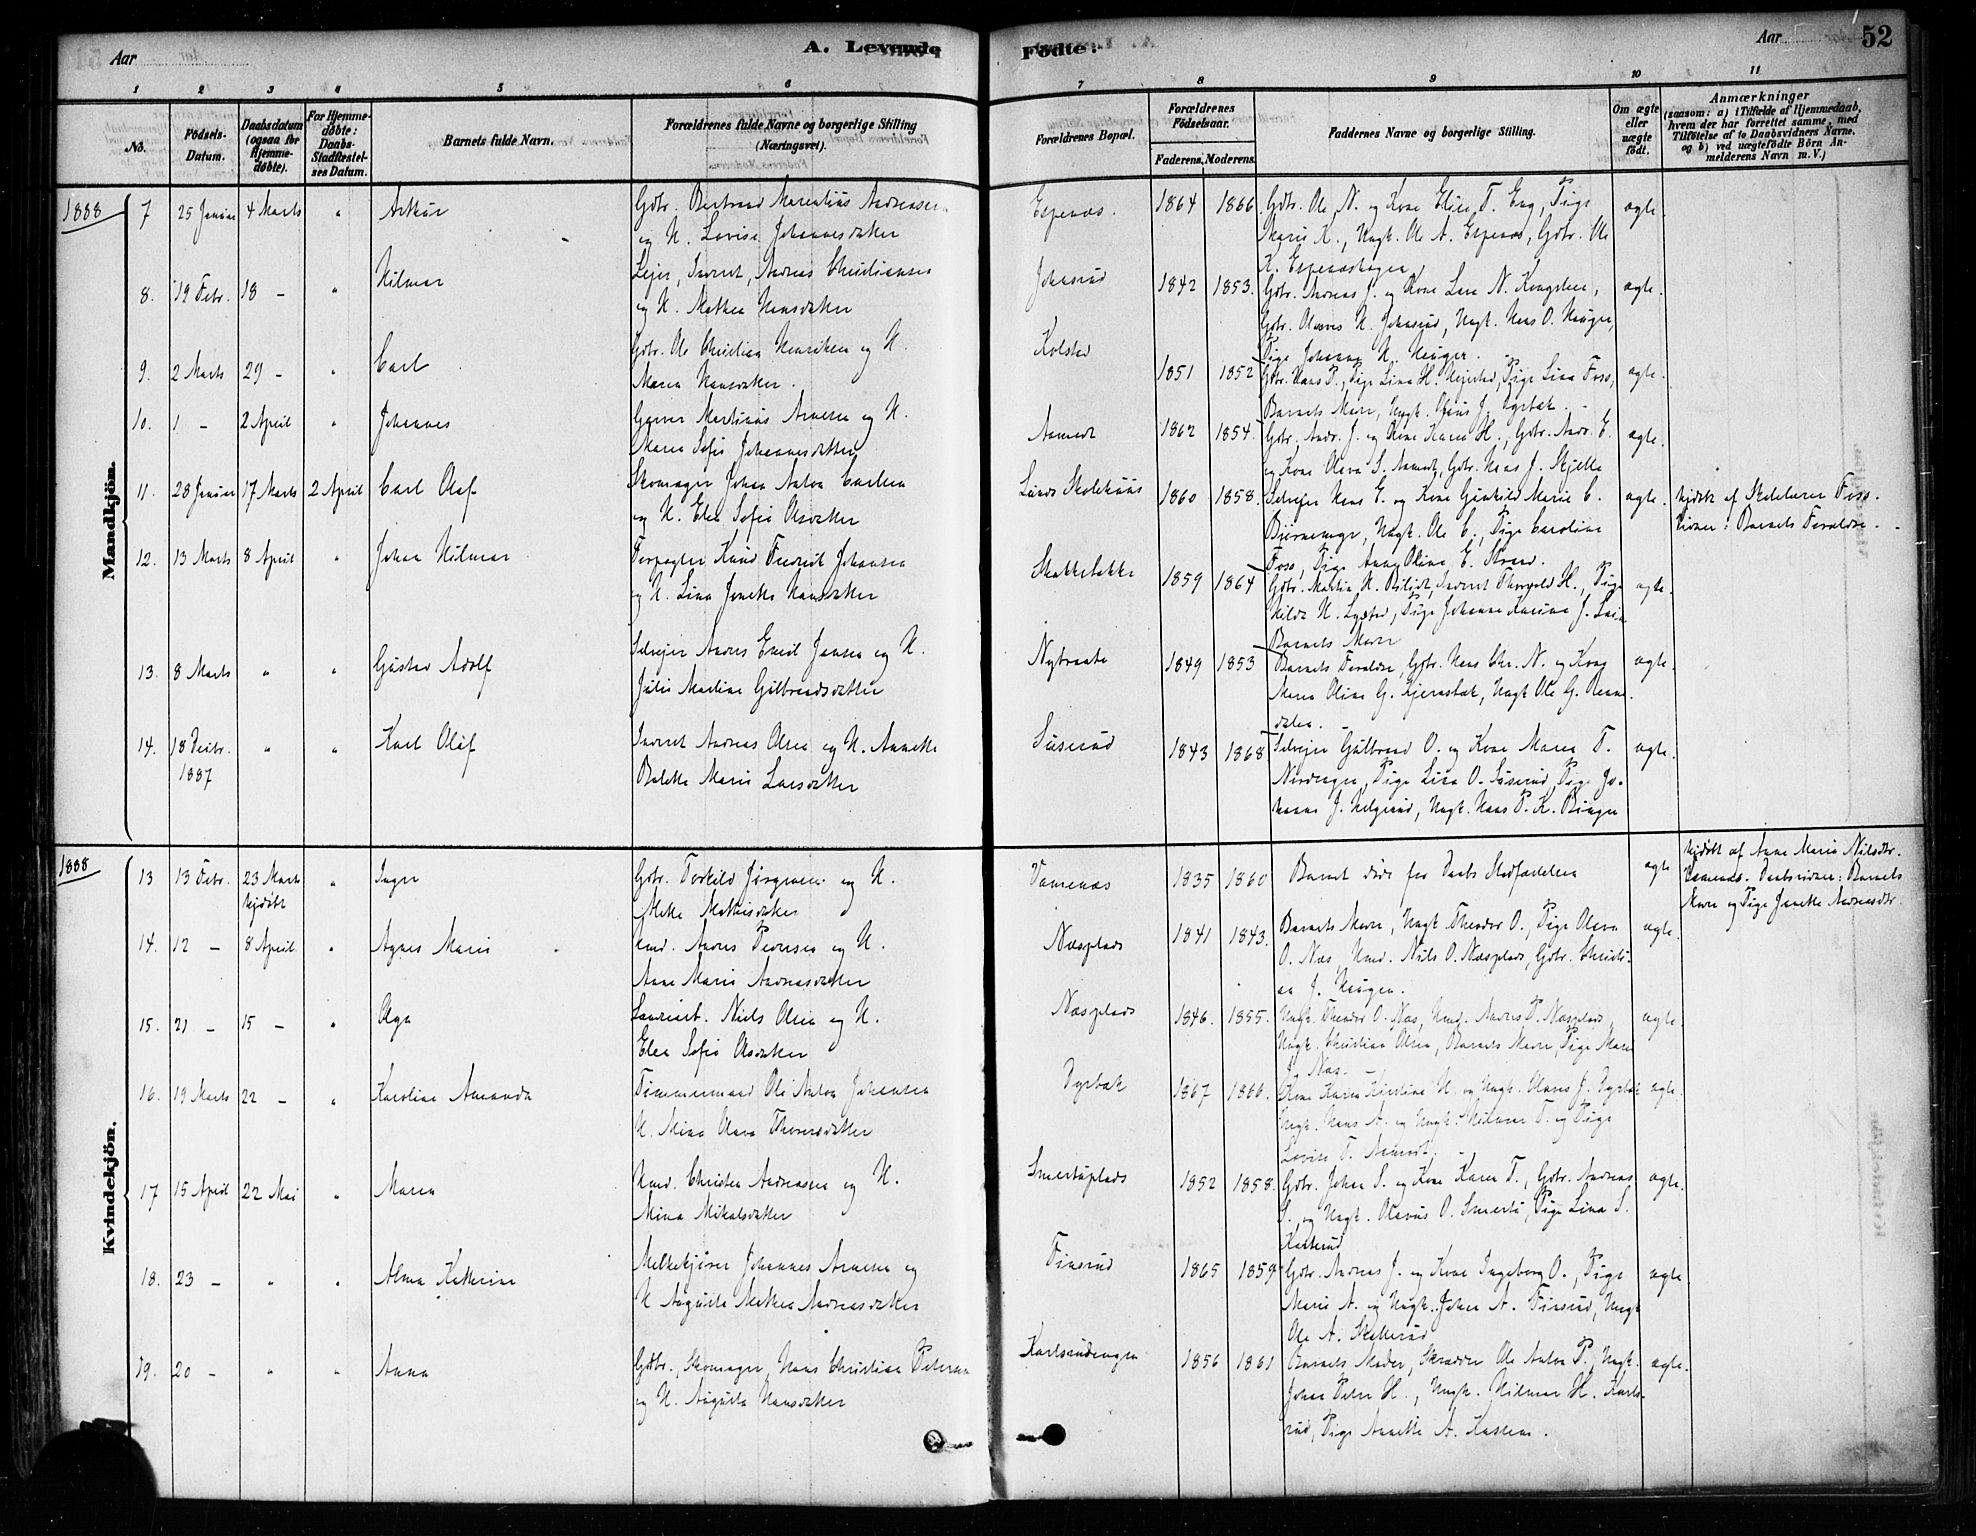 Aar
A. Levende
Födte.
Aar 52
1 2 3 4 5 6 7 8 9 10 11
No.
Födsels-Datum.
Daabsdatum (ogsaa for Hjemme-døbte).
For Hjemme-døbte: Daabs-Stadfæstel-ses Datum.
Barnets fulde Navn.
Forældrenes fulde Navne og borgerlige Stilling (Næringsvei).
Forældrenes Bopæl.
Forældrenes Födselsaar.
Faderens. Moderens.
Faddernes Navne og borgerlige Stilling.
Om ægte eller uægte födt.
Anmærkninger
(saasom: a) i Tilfælde af Hjemmedaab, hvem der har forrettet samme, med Tilföielse af to Daabsvidners Navne. og b) ved uægtefödte Börn Anmelderens Navn m. V.)
Mandkjön.
1888 7 25 Januar 4 Marts " Arthur
Gdbr. Bertrand Marentius Andreasen
og H. Lovise Johannesdatter
Espenæs. 1864 1866
Gdbr. Ole N. og Kone Elise T. Eng, Pige
Marie K., Ungk. Ole A. Espenæs, Gdbr. Ole
K. Espenæshagen
ægte.
8. 19 Febr. 18 - " Hilmar
Leier, Inderst, Andreas Christiansen
og H. Mathea Hansdatter
Johnsrud 1842 1853.
Gdbr. Andreas J. og Kone Lise N. Kongsteen,
Gdbr. Olaves H. Johnsrud, Ungk. Hans O. Haugen,
Pige Johanne N. Haugen.
ægte.
9. 2 Marts 29 - " Carl
Gdbr. Ole Christian Henriksen og H.
Maren Hansdatter.
Kolstad 1851 1852
Gdbr. Hans P., Pige Lina H. Mejerstad, Pige Lina Foss,
Barnets Mor, Ungk. Olaus J. Dyrbæk.
ægte.
10. 1 - 2 April " Johannes
Garver Martinus Arnesen og H.
Maren Sofie Johannesdatter
Aamodt 1862 1854.
Gdbr. Andr. J. og Kone Karen H., Gdbr. Andr. E.
og Kone Oleva S. Aamodt, Gdbr. Hans J. Skjelle
ægte.
11. 28 Januar 17 Marts 2 April Carl Olaf
Skomager Johan Anton Carlsen
og H. Elen Sofie Olsdatter
Lunds Skolehuus 1860 1858.
Selveier Hans E. og Kone Gunhild Marie C.
Bjørnemyr, Ungk. Ole C., Pige Caroline
Foss, Pige Anna Oline E. Strand.
ægte. hjdøbt af Skolelærer Foss.
Vidner: Barnets Forældre.
12. 13 Marts 8 April " Johan Hilmar
Forpagter Knud Fredrik Johansen
og H. Lina Jonette Hansdatter
Skakkestakke 1859 1864
Gdbr. Martin H. Bilidt, Inderst Thorvald H., Pige
Hilda H. Lysted, Pige Johanne Karine J. Lein
Barnets Mor
ægte.
13. 8 Marts " " Gustav Adolf
Selveier Anders Emil Jensen og H.
Julie Martine Gulbrandsdatter
Nybraate 1849 1853
Barnets Forældre, Gdbr. Hans Chr. N. og Kone
Maren Oline G. Kjernsbæk, Ungk Ole G. Ramsdalen.
ægte.
14. 18 Decbr. 1887 " " Karl Olaf
Inderst Andreas Olsen og H. Annette
Bolette Marie Larsdatter
Suserud 1843 1868
Selveier Gulbrand O. og Kone Maren T.
Nordengen, Pige Lina O. Suserud, Pige Johanne
J. Helgerud, Ungk. Hans P. K. Bingen
ægte.
Kvindekjön.
1888 13 13 Febr. 23 Marts hjdøbt " Inger
Gdbr. Torkild Jörgensen og H.
Mette Mathisdatter
Vamenæs 1835 1860
Barnet døde før Daabs Stadfæstelsen
ægte hjdøbt af Anne Marie Nilsdtr.
Vamenæs. Daabsvidner: Barnets
Mor og Pige Janette Andreasdtr.
14. 12 - 8 April. " Agnes Marie
Hmd. Anders Pedersen og H.
Anne Marie Andreasdatter
Næsplads 1841 1843.
Barnets Mor, Ungk Theodor O., Pige Oleva
O. Næs, Hmd. Nils O. Næsplads, Gdbr. Christian
J. Haugen.
ægte.
15. 21 - 15 - " Olga
Landv. Niels Olsen og H.
Elen Sofie Olsdatter
Næsplads 1846. 1855.
Ungk. Theodor O. Næs, Hmd. Anders P. Næsplads,
Ungk. Christian Olsen, Barnets Mor, Pige Maren
J. Næs.
ægte.
16. 19 Marts 22 - " Karoline Amanda
Tömmermand Ole Anton Johansen
H. Mina Olava Thoresdatter
Dyrbæk 1867 1866.
Kone Karen Kirstine H. og Ungk. Olaves J. Dyrbæk
Ungk. Hans A. og Ungk. Hilmar T. og Pige
Lovise T. Aamodt.
ægte.
17 15 April 22 Mai " Maren
Hmd. Christen Andreasen og H.
Mina Mikalsdatter
Smertuplads 1852 1858.
Gdbr. Johan S. og Kone Karen T., Gdbr. Andreas
S. og Ungk. Olavus O. Smertu, Pige Lina S.
Karterud
ægte.
18. 23 - " " Alma Kathrine
Melkekjører Johannes Arnesen og
H Augusta Mathea Andreasdatter
Finsrud 1865 1859
Gdbr. Andreas J. og Kone Ingeborg O., Pige
Marie A. og Ungk. Johan A. Finsrud, Ungk
Ole A. Skatterud
ægte
19. 20 - " " Anna
Gdbr., Skomager, Hans Christian Petersen
og H. Augusta Hansdatter
Karlsrudengen 1856 1861
Barnets Moder, Skredder Ole Anton P., Ungk.
Johan Peter H., Ungk. Hilmar H. Karlsrud,
Pige Annette A. Kasteen.
ægte.